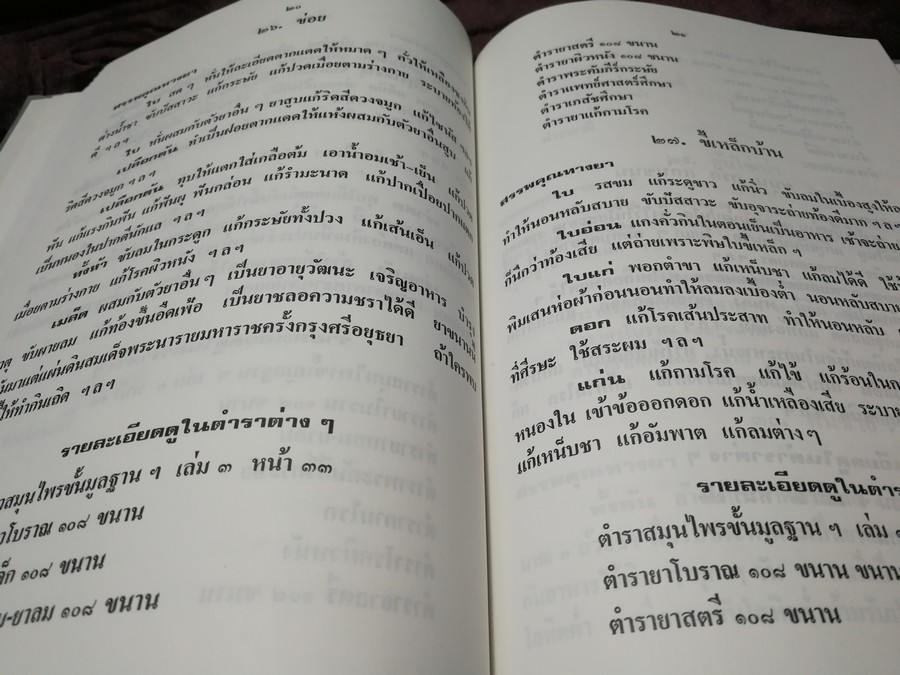 ๒๐
๒๖. ข่อย
สรรพคุณทางยา
ใบ สด ๆ หั่นให้ละเอียดตากแดดให้หมาด ๆ คั่วให้เหลือง
ต่างน้ำชา ขับปัสสาวะ แก้กระษัย แก้ปวดเมื่อยตามร่างกาย ระบาย
ดี ฯลฯ
ใบ หั่นผสมกับตัวยาอื่น ๆ ยาสูบแก้ริดสีดวงจมูก แก้ไซนัส ฯลฯ
เปลือกต้น ทำเป็นฝอยตากแดดให้แห้งผสมกับตัวยาอื่นสูบ แก้
ริดสีดวงจมูก ฯลฯ
เปลือกต้น ทุบให้แตกใส่เกลือต้ม เอาน้ำอมเช้า-เย็น แก้ปวด
ฟัน แก้แมงกินฟัน แก้ฟันผุ ฟันกล่อน แก้รำมะนาด แก้ปากเปื่อยปาก
เป็นหนองในปากดีนักแล ฯลฯ
ทั้งห้า ขับลมในกระดูก แก้กระษัยทั้งปวง แก้เส้นเอ็น แก้ปวด
เมื่อยตามร่างกาย แก้โรคผิวหนัง ฯลฯ
เมล็ด ผสมกับตัวยาอื่นๆ เป็นยาอายุวัฒนะ เจริญอาหาร บำรุง
ธาตุ ขับผายลม แก้ท้องขึ้นอืดเฟ้อ เป็นยาชลอความชราได้ดี ยาขนานนี้
มาแต่แผ่นดินสมเด็จพระนารายมหาราชครั้งกรุงศรีอยุธยา ถ้าใครพบ
ให้ทำกินเถิด ฯลฯ
รายละเอียดดูในตำราต่าง ๆ
สมุนไพรขั้นมูลฐาน ฯ เล่ม ๓ หน้า ๓๓
โบราณ ๑๐๘ ขนาน
เด็ก ๑๐๘ ขนาน
-ยาลม ๑๐๘ ขนาน
๒๑
ตำรายาสตรี ๑๐๘ ขนาน
ตำรายาผิวหนัง ๑๐๘ ขนาน
ตำราพระคัมภีร์กระษัย
ตำราแพทย์ศาสตร์ศึกษา
ตำราเภสัชศึกษา
ตำรายาแก้กามโรค
๒๗. ขี้เหล็กบ้าน
สรรพคุณทางยา
ใบ รสขม แก้ระดูขาว แก้นิ่ว ขับลมในเบื้องสูงให้
ทำให้นอนหลับสบาย ขับปัสสาวะ ขับอุจาระถ่ายท้องดีมาก ฯลฯ
ใบอ่อน แกงคั่วกินในตอนเย็นเป็นอาหาร เช้าจะถ่าย
ก็นึกว่าท้องเสีย แต่ถ่ายเพราะพิษใบขี้เหล็ก ๆ
ใบแก่ พอกตำขา แก้เหน็บชา แก้ลมได้ดี ใช้
พิมเสนห่อผ้าก่อนนอนทำให้ลมลงเบื้องต่ำ นอนหลับสบาย
ดอก แก้โรคเส้นประสาท ทำให้นอนหลับ
ที่ศีรษะ ใช้สระผม ฯลฯ
แก่น แก้กามโรค แก้ไข้ แก้ร้อนใน
หนองใน เข้าข้อออกดอก แก้น้ำเหลืองเสีย ระบาย
แก้เหน็บชา แก้อัมพาต แก้ลมต่างๆ
รายละเอียดดูในตำรา
ตำราสมุนไพรขั้นมูลฐาน ฯ เล่ม
ตำรายาโบราณ ๑๐๘ ขนาน
ตำรายาสตรี ๑๐๘ ขนาน